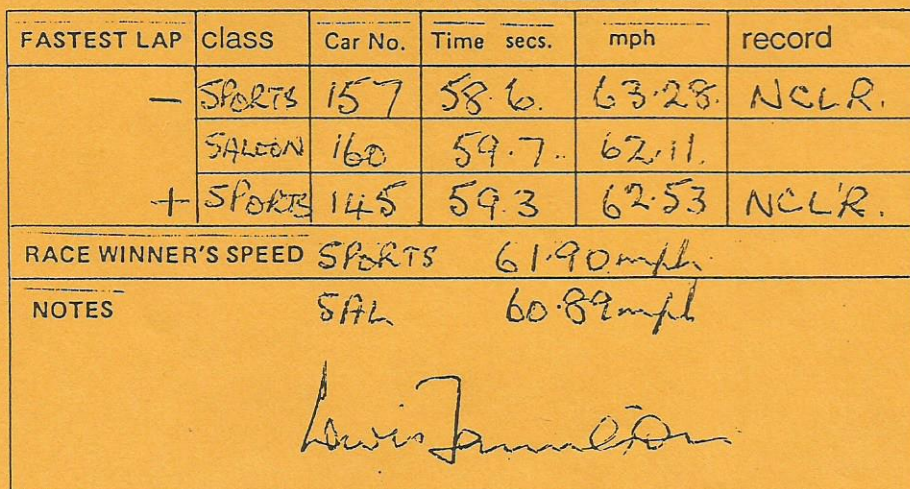 FASTEST LAP class Car No. Time secs. mph record
— SPORTS 157 58.6. 63.28. NCLR.
SALOON 160 59.7.. 62.11.
+ SPORTS 145 59.3 62.53 NCL'R.
RACE WINNER'S SPEED SPORTS 61.90 mph.
NOTES SAL 60.89 mph